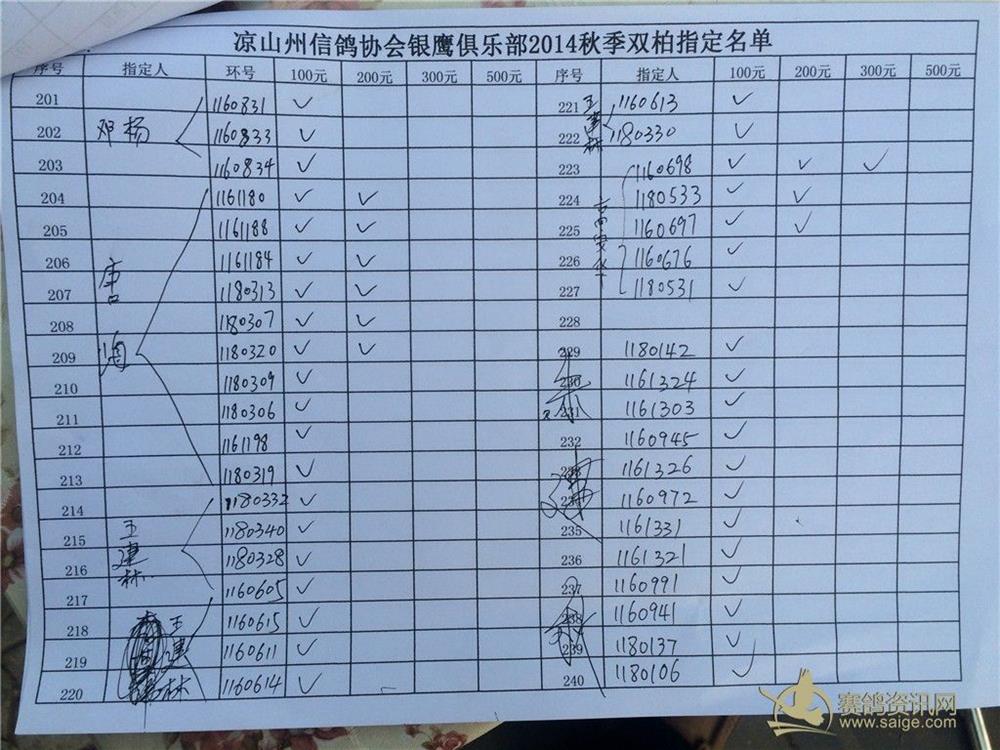 凉山州信鸽协会银鹰俱乐部2014秋季双柏指定名单
序号 指定人 环号 100元 200元 300元 500元 序号 指定人 100元 200元 300元 500元
201 1160831 ✓ 221 王建林 1160613 ✓
202 邓杨 1160833 ✓ 222 1180330 ✓
203 1160834 ✓ 223 1160698 ✓ ✓ ✓
204 1161180 ✓ ✓ 224 1180533 ✓ ✓
205 1161188 ✓ ✓ 225 1160697 ✓ ✓
206 1161184 ✓ ✓ 226 1160676 ✓
207 唐 1180313 ✓ ✓ 227 1180531 ✓
208 1180307 ✓ ✓ 228
209 1180320 ✓ ✓ 229 1180142 ✓
210 1180309 ✓ 230 朱 1161324 ✓
211 1180306 ✓ 231 1161303 ✓
212 1161198 ✓ 232 1160945 ✓
213 1180319 ✓ 233 1161326 ✓
214 1180332 ✓ 234 1160972 ✓
215 王建林 1180340 ✓ 235 1161331 ✓
216 1180328 ✓ 236 1161321 ✓
217 1160605 ✓ 237 1160991 ✓
218 王建林 1160615 ✓ 238 1160941 ✓
219 1160611 ✓ 239 1180137 ✓
220 1160614 ✓ 240 1180106 ✓
赛鸽资讯网
www.saige.com